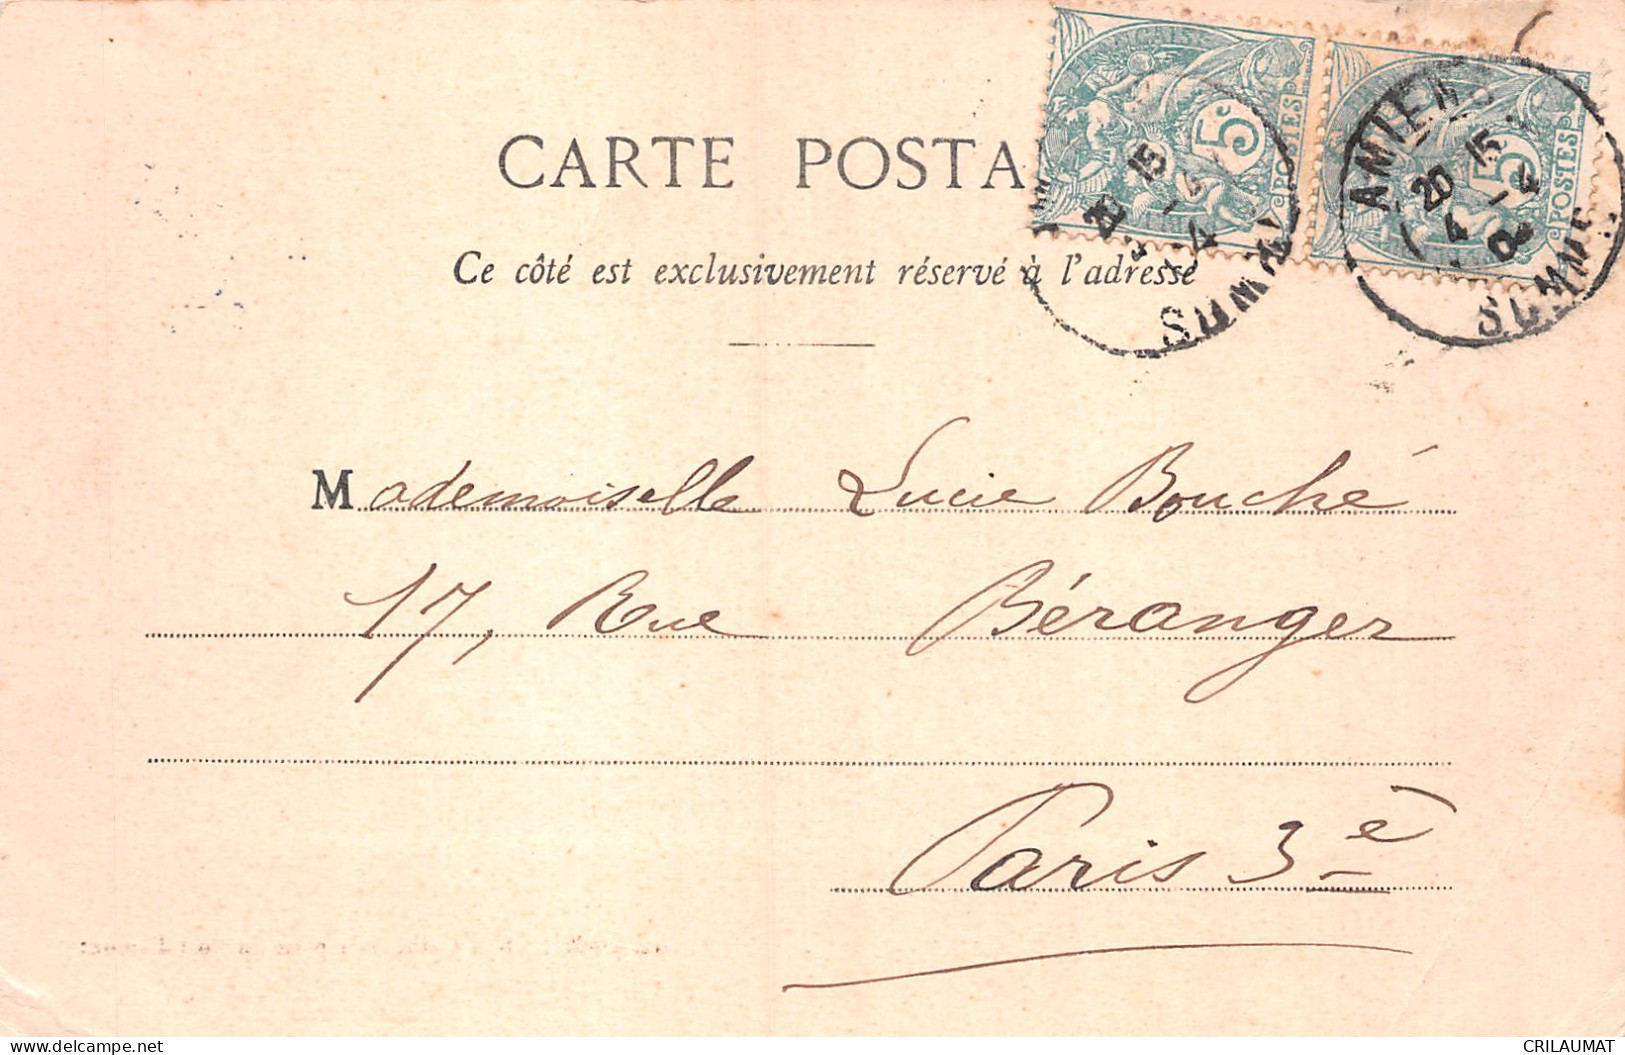 CARTE POSTA
Ce côté est exclusivement réservé à l'adresse
5c POSTES
5 POSTES
20 15
4
SOMME
AMIENS
20 15
4 - 4
SOMME
Mademoiselle Lucie Bouché
17, Rue Béranger
Paris 3è
delcampe.net
CRILAUMAT